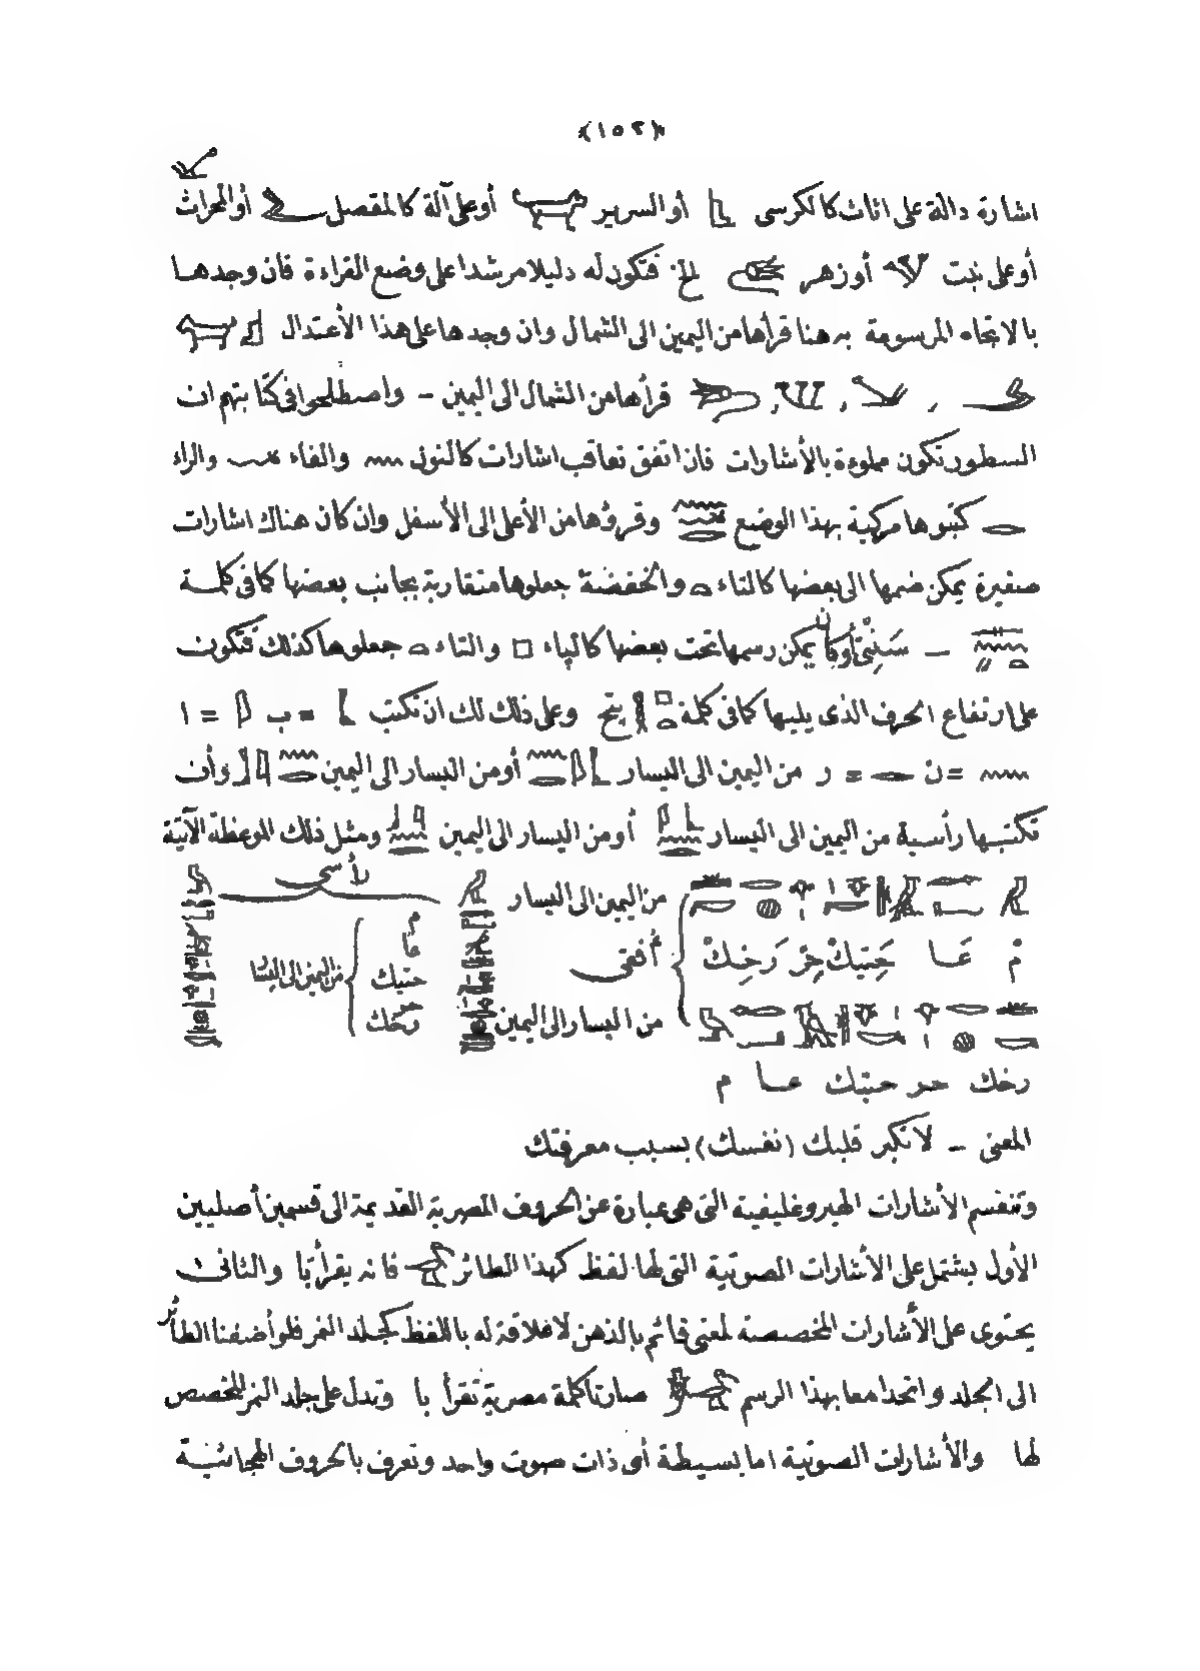 ﴿١٥٢﴾
اشارة دالة على اثاث كالكرسى أو السرير أو على آلة كالمقصل أو المحراث
أو على نبت أو زهر الخ فتكون له دليلا مرشدا على وضع القراءة فان وجدها
بالاتجاه المرسومة به هنا قرأها من اليمين الى الشمال وان وجدها على هذا الأعتدال
قرأها من الشمال الى اليمين – واصطلحوا فى كتابتهم ان
السطور تكون مملوءة بالأشارات فان اتفق تعاقب اشارات كالنون والفاء والراء
كتبوها مركبة بهذا الوضع وقرؤها من الأعلى الى الأسفل وان كان هناك اشارات
صغيرة يمكن ضمها الى بعضها كالتاء والخفضة جعلوها متقاربة بجانب بعضها كما فى كلمة
– سَنِتى أو كان يمكن رسمها تحت بعضها كالپاء والتاء جعلوها كذلك فتكون
على ارتفاع الحرف الذى يليها كما فى كلمة پتح وعلى ذلك لك ان تكتب = ب = ا
= ن = ر من اليمين الى اليسار أو من اليسار الى اليمين وأن
تكتبها رأسية من اليمين الى اليسار أو من اليسار الى اليمين ومثل ذلك الموعظة الآتية
من اليمين الى اليسار رأسى
م عَا حَتِيكْ حِرْ رَخِكْ أفقى م عا حتيك حر رخك من اليمين الى اليسار
من اليسار الى اليمين
رخك حر حتيك عا م
المعنى – لا تكبر قلبك (نفسك) بسبب معرفتك
وتنقسم الأشارات الهيروغليفية التى هى عبارة عن الحروف المصرية القديمة الى قسمين أصليين
الأول يشتمل على الأشارات الصوتية التى لها لفظ كهذا الطائر فانه يقرأ پا والثانى
يحتوى على الأشارات المخصصة لمعنى قائم بالذهن لا علاقة له باللفظ كجلد النمر فلو أضفنا الطائر
الى الجلد واتحدا معا بهذا الرسم صارتا كلمة مصرية تقرأ با وتدل على جلد النمر المخصص
لها والأشارات الصوتية اما بسيطة أى ذات صوت واحد وتعرف بالحروف الهجائية